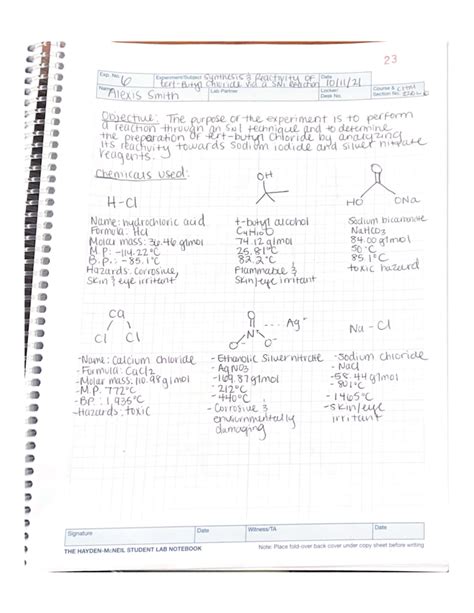 23
Exp. No. 6
Experiment/Subject Synthesis & Reactivity of
tert-Butyl Chloride via a SN1 Reaction
Date 10/11/21
Name Alexis Smith
Lab Partner
Locker/
Desk No.
Course &
Section No.
Objective: The purpose of the experiment is to perform
a reaction through an SN1 technique and to determine
the preparation of tert-butyl chloride by analyzing
its reactivity towards Sodium iodide and silver nitrate
reagents.
Chemicals used:
H-Cl
OH
O
HO
ONa
Name: hydrochloric acid
Formula: HCl
Molar mass: 36.46 g/mol
M.P: -114.22°C
B.P.: -85.1°C
Hazards: corrosive,
Skin & eye irritant
t-butyl alcohol
C4H10O
74.12 g/mol
25.81°C
82.2°C
Flammable &
Skin/eye irritant
Sodium bicarbonate
NaHCO3
84.00 g/mol
50°C
851°C
toxic hazard
Ca
Cl Cl
O
N+
O-
O-
Ag+
Na-Cl
-Name: Calcium chloride
-Formula: CaCl2
-Molar mass: 110.98 g/mol
-M.P: 772°C
-BP.: 1,935°C
-Hazards: toxic
-Ethanolic Silver nitrate
-AgNO3
-169.87 g/mol
-212°C
-440°C
-Corrosive &
environmentally
damaging
-Sodium chloride
-NaCl
-58.44 g/mol
-801°C
-1465°C
-skin/eye
irritant
Signature
Date
Witness/TA
Date
THE HAYDEN-McNEIL STUDENT LAB NOTEBOOK
Note: Place fold-over back cover under copy sheet before writing